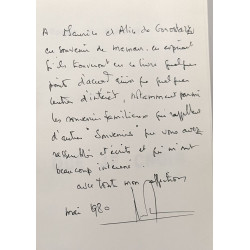 A Maurice et Alix de
en souvenir de Meneou, en espérant
qu'ils trouveront en ce livre quelques
points d'accord ainsi que quelques
centres d'intérêt, notamment parmi
les souvenirs familiaux qui rappellent
d'autres "souvenirs" que vous avez
rassemblés et écrits et qui m'ont
beaucoup intéressé.
avec toute mon affection
mai 1980